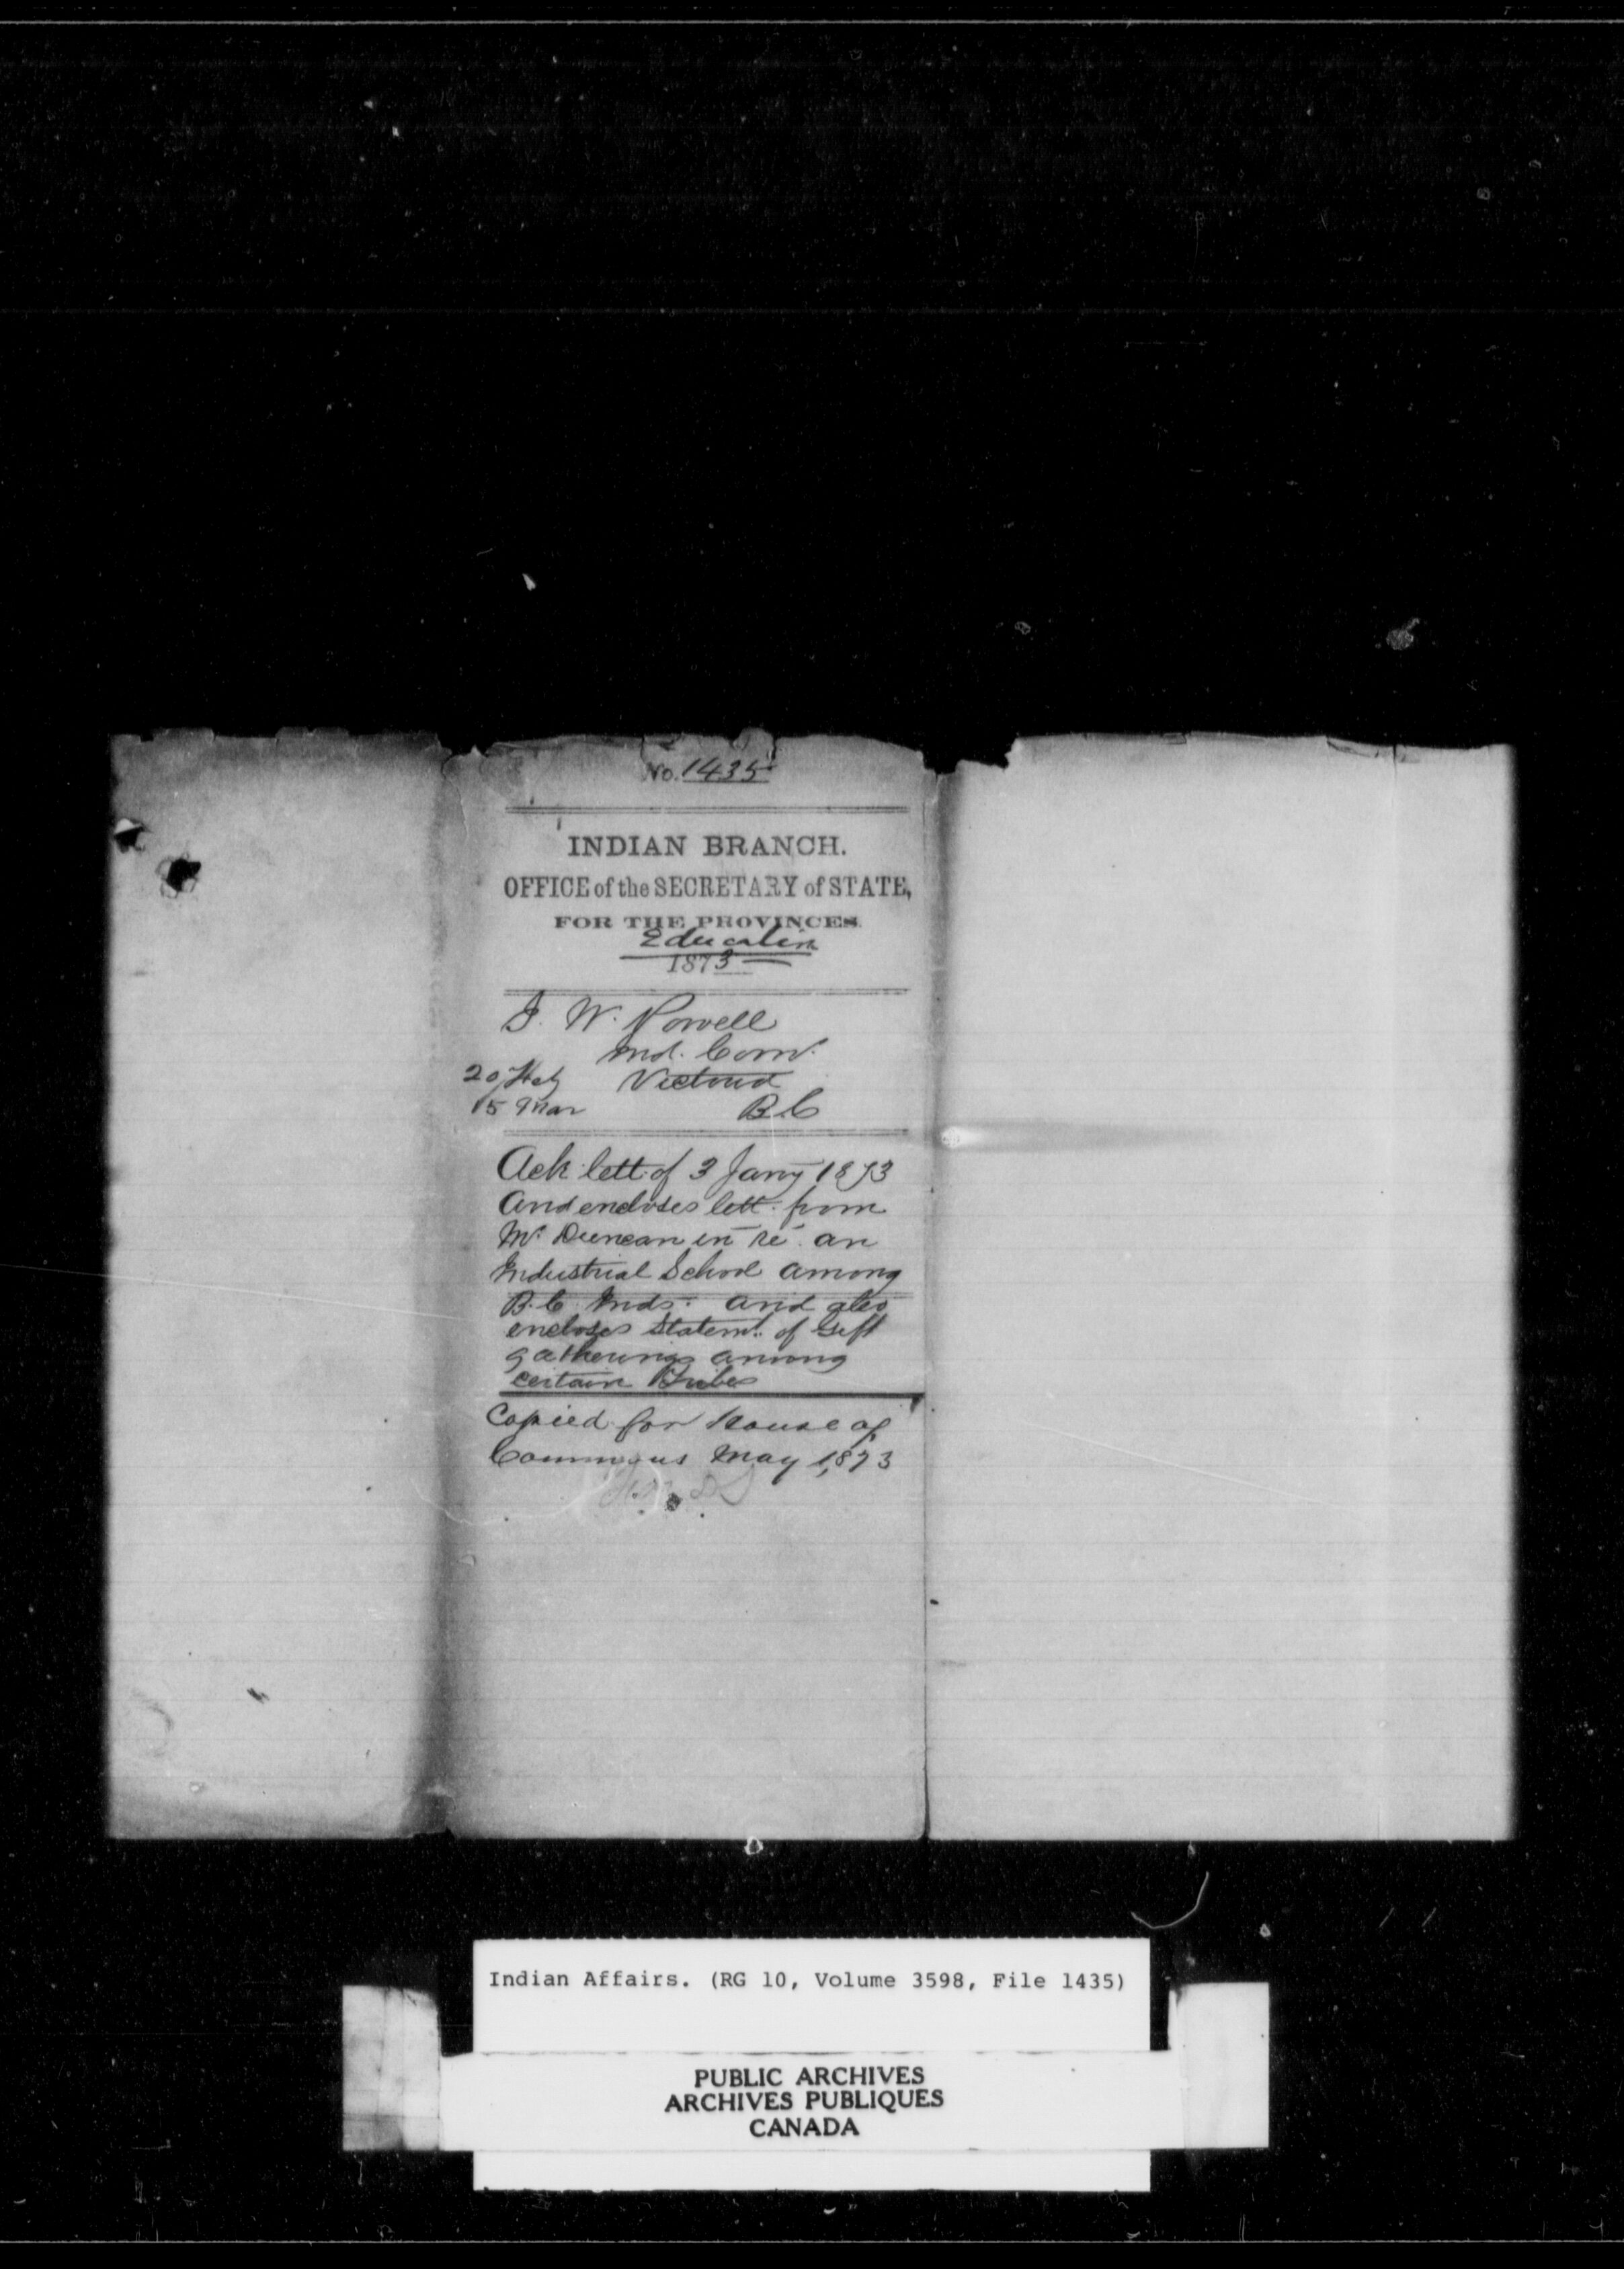 No. 1435
INDIAN BRANCH.
OFFICE of the SECRETARY of STATE,
FOR THE PROVINCES.
Education
1873
I. W. Powell
Ind. Comr.
20 Feby Victoria
15 Mar B.C
Ack. lett. of 3 Jany 1873
and encloses lett. from
Mr. Duncan in re. an
Industrial School among
B.C Inds. and also
encloses statemt. of Gift
gatherings among
certain Tribes
Copied for House of
Commons May 1873
Indian Affairs. (RG 10, Volume 3598, File 1435)
PUBLIC ARCHIVES
ARCHIVES PUBLIQUES
CANADA